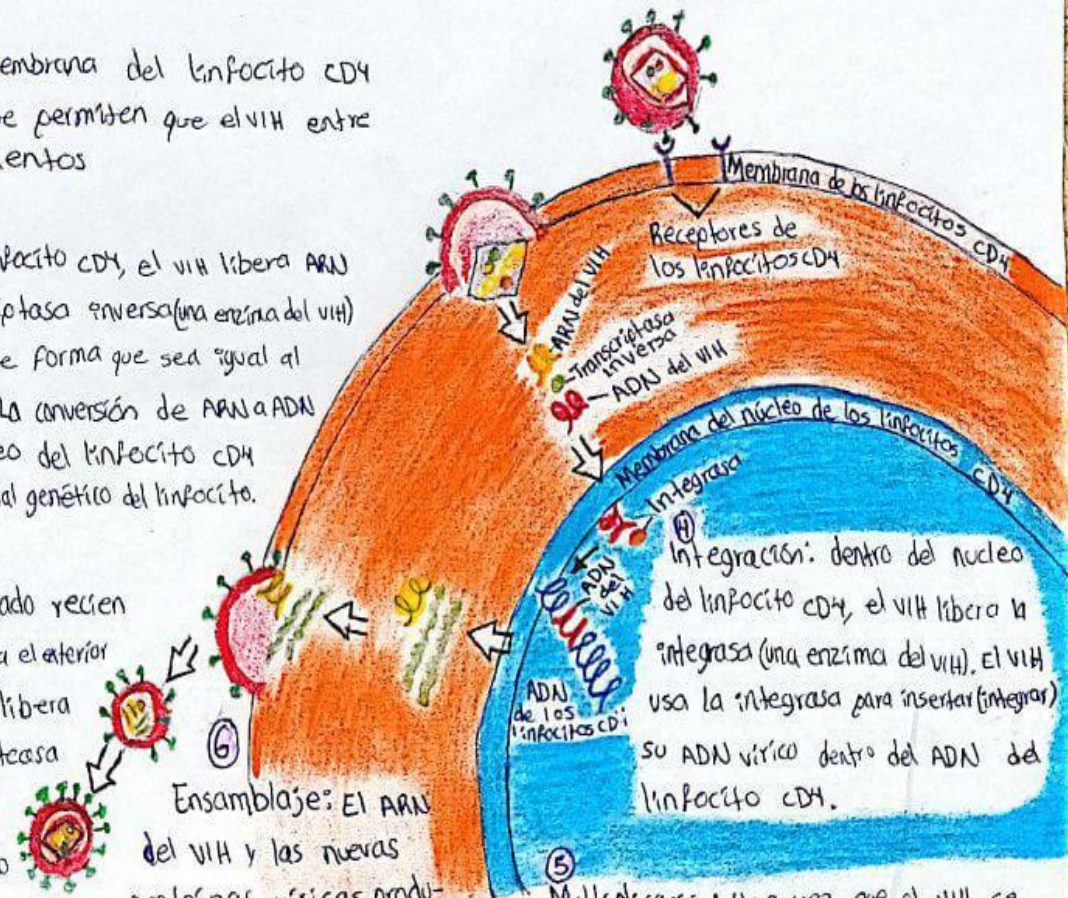 embrana del linfocito CD4
e permiten que el VIH entre
entos
focito CD4, el VIH libera ARN
ptasa inversa (una enzima del VIH)
e forma que sea igual al
La conversión de ARN a ADN
eo del linfocito CD4
al genético del linfocito.
ado recien
a el exterior
libera
teasa
o
Membrana de los linfocitos CD4
Receptores de
los linfocitos CD4
ARN del VIH
Transcriptasa
inversa
ADN del VIH
Membrana del núcleo de los linfocitos CD4
Integrasa
ADN
del
VIH
ADN
de los
linfocitos CD4
④
Integración: dentro del nucleo
del linfocito CD4, el VIH libera la
integrasa (una enzima del VIH). El VIH
usa la integrasa para insertar (integrar)
su ADN vírico dentro del ADN del
linfocito CD4.
⑥
Ensamblaje: El ARN
del VIH y las nuevas
proteínas víricas produ-
⑤